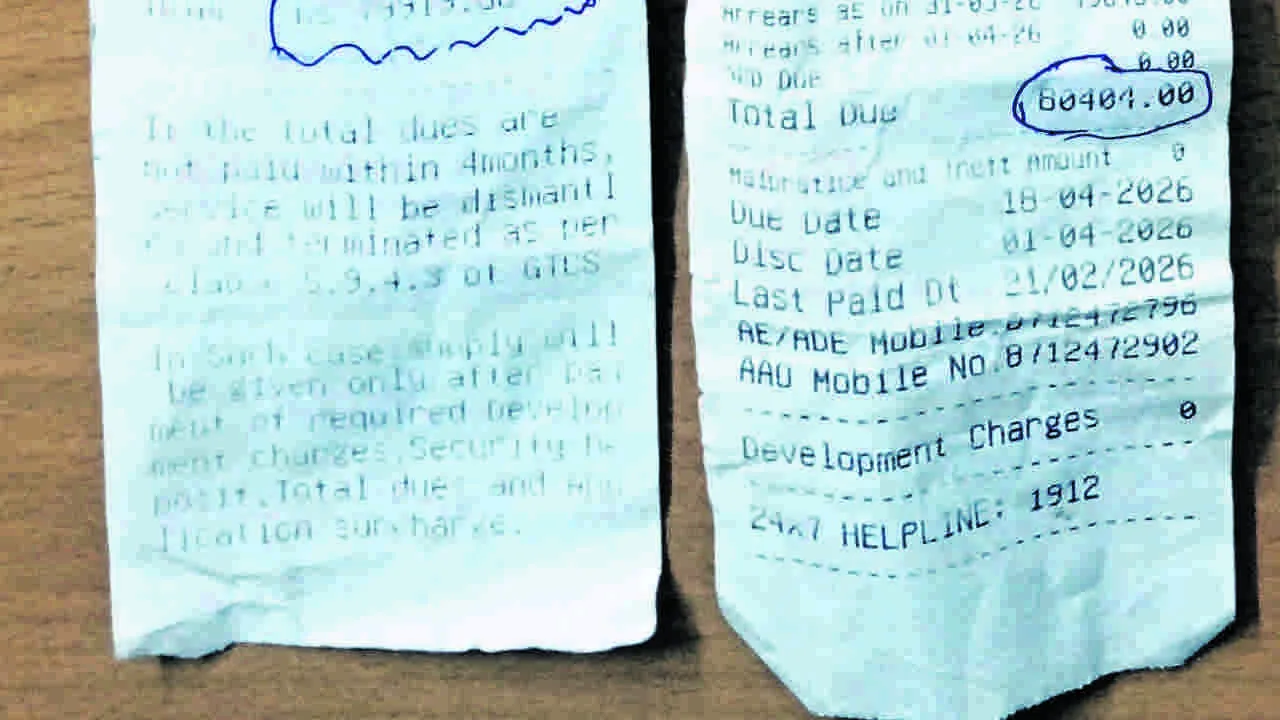 If the total dues are
not paid within 4months,
service will be dismantl
ed and terminated as per
clause 5.9.4.3 of GTCS
In Such case supply will
be given only after pay
ment of required Develop
ment charges,Security De
posit,Total dues and App
lication surcharge.
Arrears as on 31-03-26
Arrears after 01-04-26 0.00
0.00
Total Due 80404.00
Malpractice and Theft Amount 0
Due Date 18-04-2026
Disc Date 01-04-2026
Last Paid Dt 21/02/2026
AE/ADE Mobile.8712472796
AAO Mobile NO.8712472902
Development Charges 0
24x7 HELPLINE: 1912